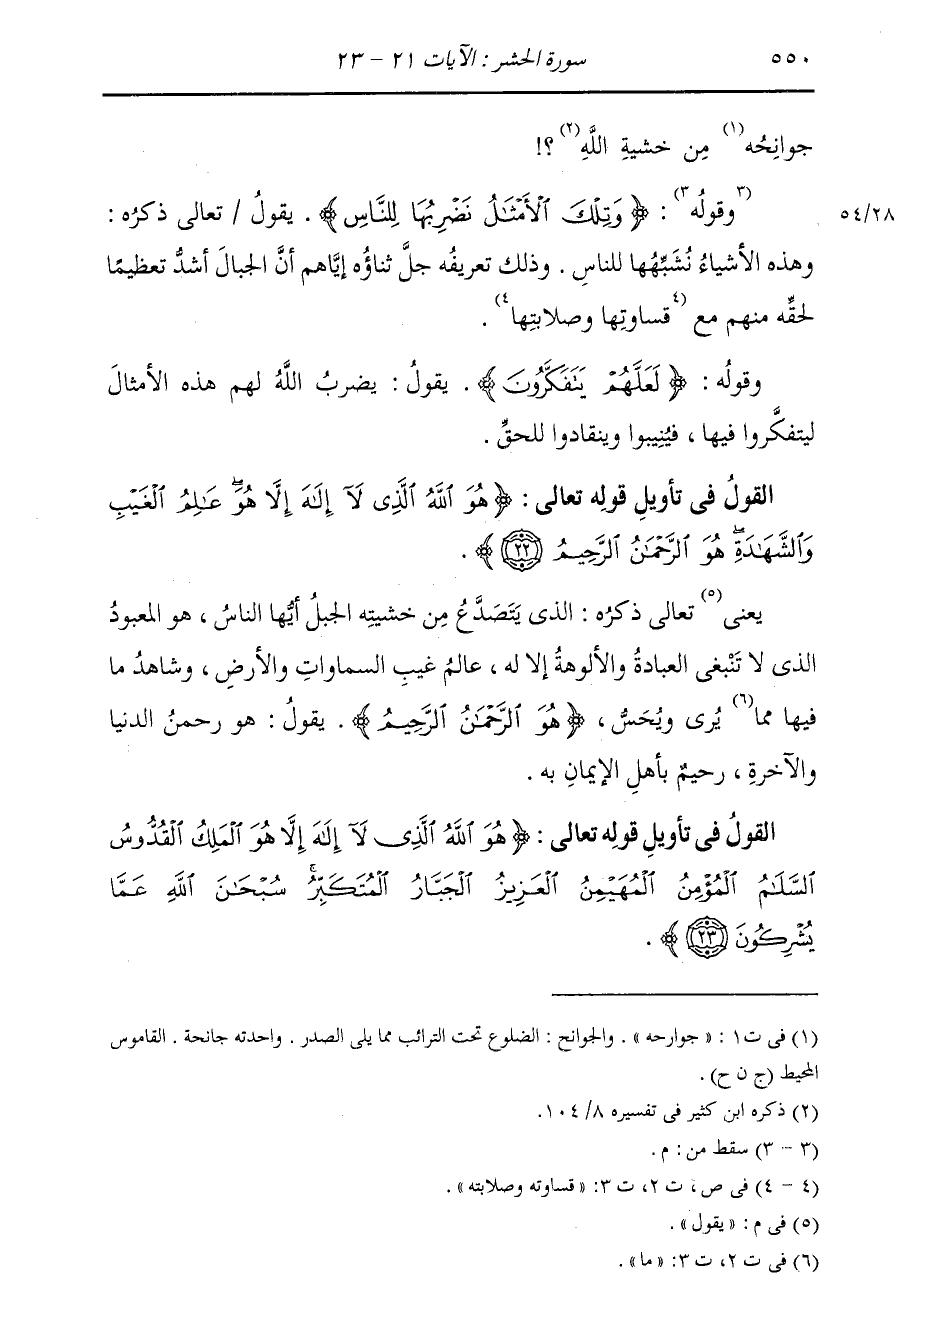 ٥٥٠ سورة الحشر : الآيات ٢١ - ٢٣
جوانِحُه(١) مِن خشيةِ اللَّهِ(٢) ؟!
٥٤/٢٨ (٣وقولُه٣) : ﴿ وَتِلْكَ ٱلْأَمْثَـٰلُ نَضْرِبُهَا لِلنَّاسِ ﴾ . يقولُ / تعالى ذكرُه :
وهذه الأشياءُ نُشَبِّهُها للناسِ . وذلك تعريفُه جلَّ ثناؤُه إيَّاهم أنَّ الجبالَ أشدُّ تعظيمًا
لحقِّه منهم مع (٤قساوتِها وصلابتِها٤) .
وقولُه : ﴿ لَعَلَّهُمْ يَتَفَكَّرُونَ ﴾ . يقولُ : يضربُ اللَّهُ لهم هذه الأمثالَ
ليتفكَّروا فيها ، فيُنِيبوا وينقادوا للحقِّ .
القولُ فى تأويلِ قولِه تعالى : ﴿ هُوَ ٱللَّهُ ٱلَّذِى لَآ إِلَـٰهَ إِلَّا هُوَۖ عَـٰلِمُ ٱلْغَيْبِ
وَٱلشَّهَـٰدَةِۖ هُوَ ٱلرَّحْمَـٰنُ ٱلرَّحِيمُ ٢٢ ﴾ .
يعنى(٥) تعالى ذكرُه : الذى يَتَصَدَّعُ مِن خشيتِه الجبلُ أيُّها الناسُ ، هو المعبودُ
الذى لا تَنْبغى العبادةُ والألوهةُ إلا له ، عالمُ غيبِ السماواتِ والأرضِ ، وشاهدُ ما
فيها مما(٦) يُرى ويُحَسُّ ، ﴿ هُوَ ٱلرَّحْمَـٰنُ ٱلرَّحِيمُ ﴾ . يقولُ : هو رحمنُ الدنيا
والآخرةِ ، رحيمٌ بأهلِ الإيمانِ به .
القولُ فى تأويلِ قولِه تعالى : ﴿ هُوَ ٱللَّهُ ٱلَّذِى لَآ إِلَـٰهَ إِلَّا هُوَ ٱلْمَلِكُ ٱلْقُدُّوسُ
ٱلسَّلَـٰمُ ٱلْمُؤْمِنُ ٱلْمُهَيْمِنُ ٱلْعَزِيزُ ٱلْجَبَّارُ ٱلْمُتَكَبِّرُۚ سُبْحَـٰنَ ٱللَّهِ عَمَّا
يُشْرِكُونَ ٢٣ ﴾ .
(١) فى ت١ : « جوارحه » . والجوانح : الضلوع تحت الترائب مما يلى الصدر . واحدته جانحة . القاموس
المحيط (ج ن ح) .
(٢) ذكره ابن كثير فى تفسيره ٨/ ١٠٤.
(٣ - ٣) سقط من : م .
(٤ - ٤) فى ص ، ت ٢، ت ٣: « قساوته وصلابته » .
(٥) فى م : « يقول » .
(٦) فى ت ٢، ت ٣: « ما » .